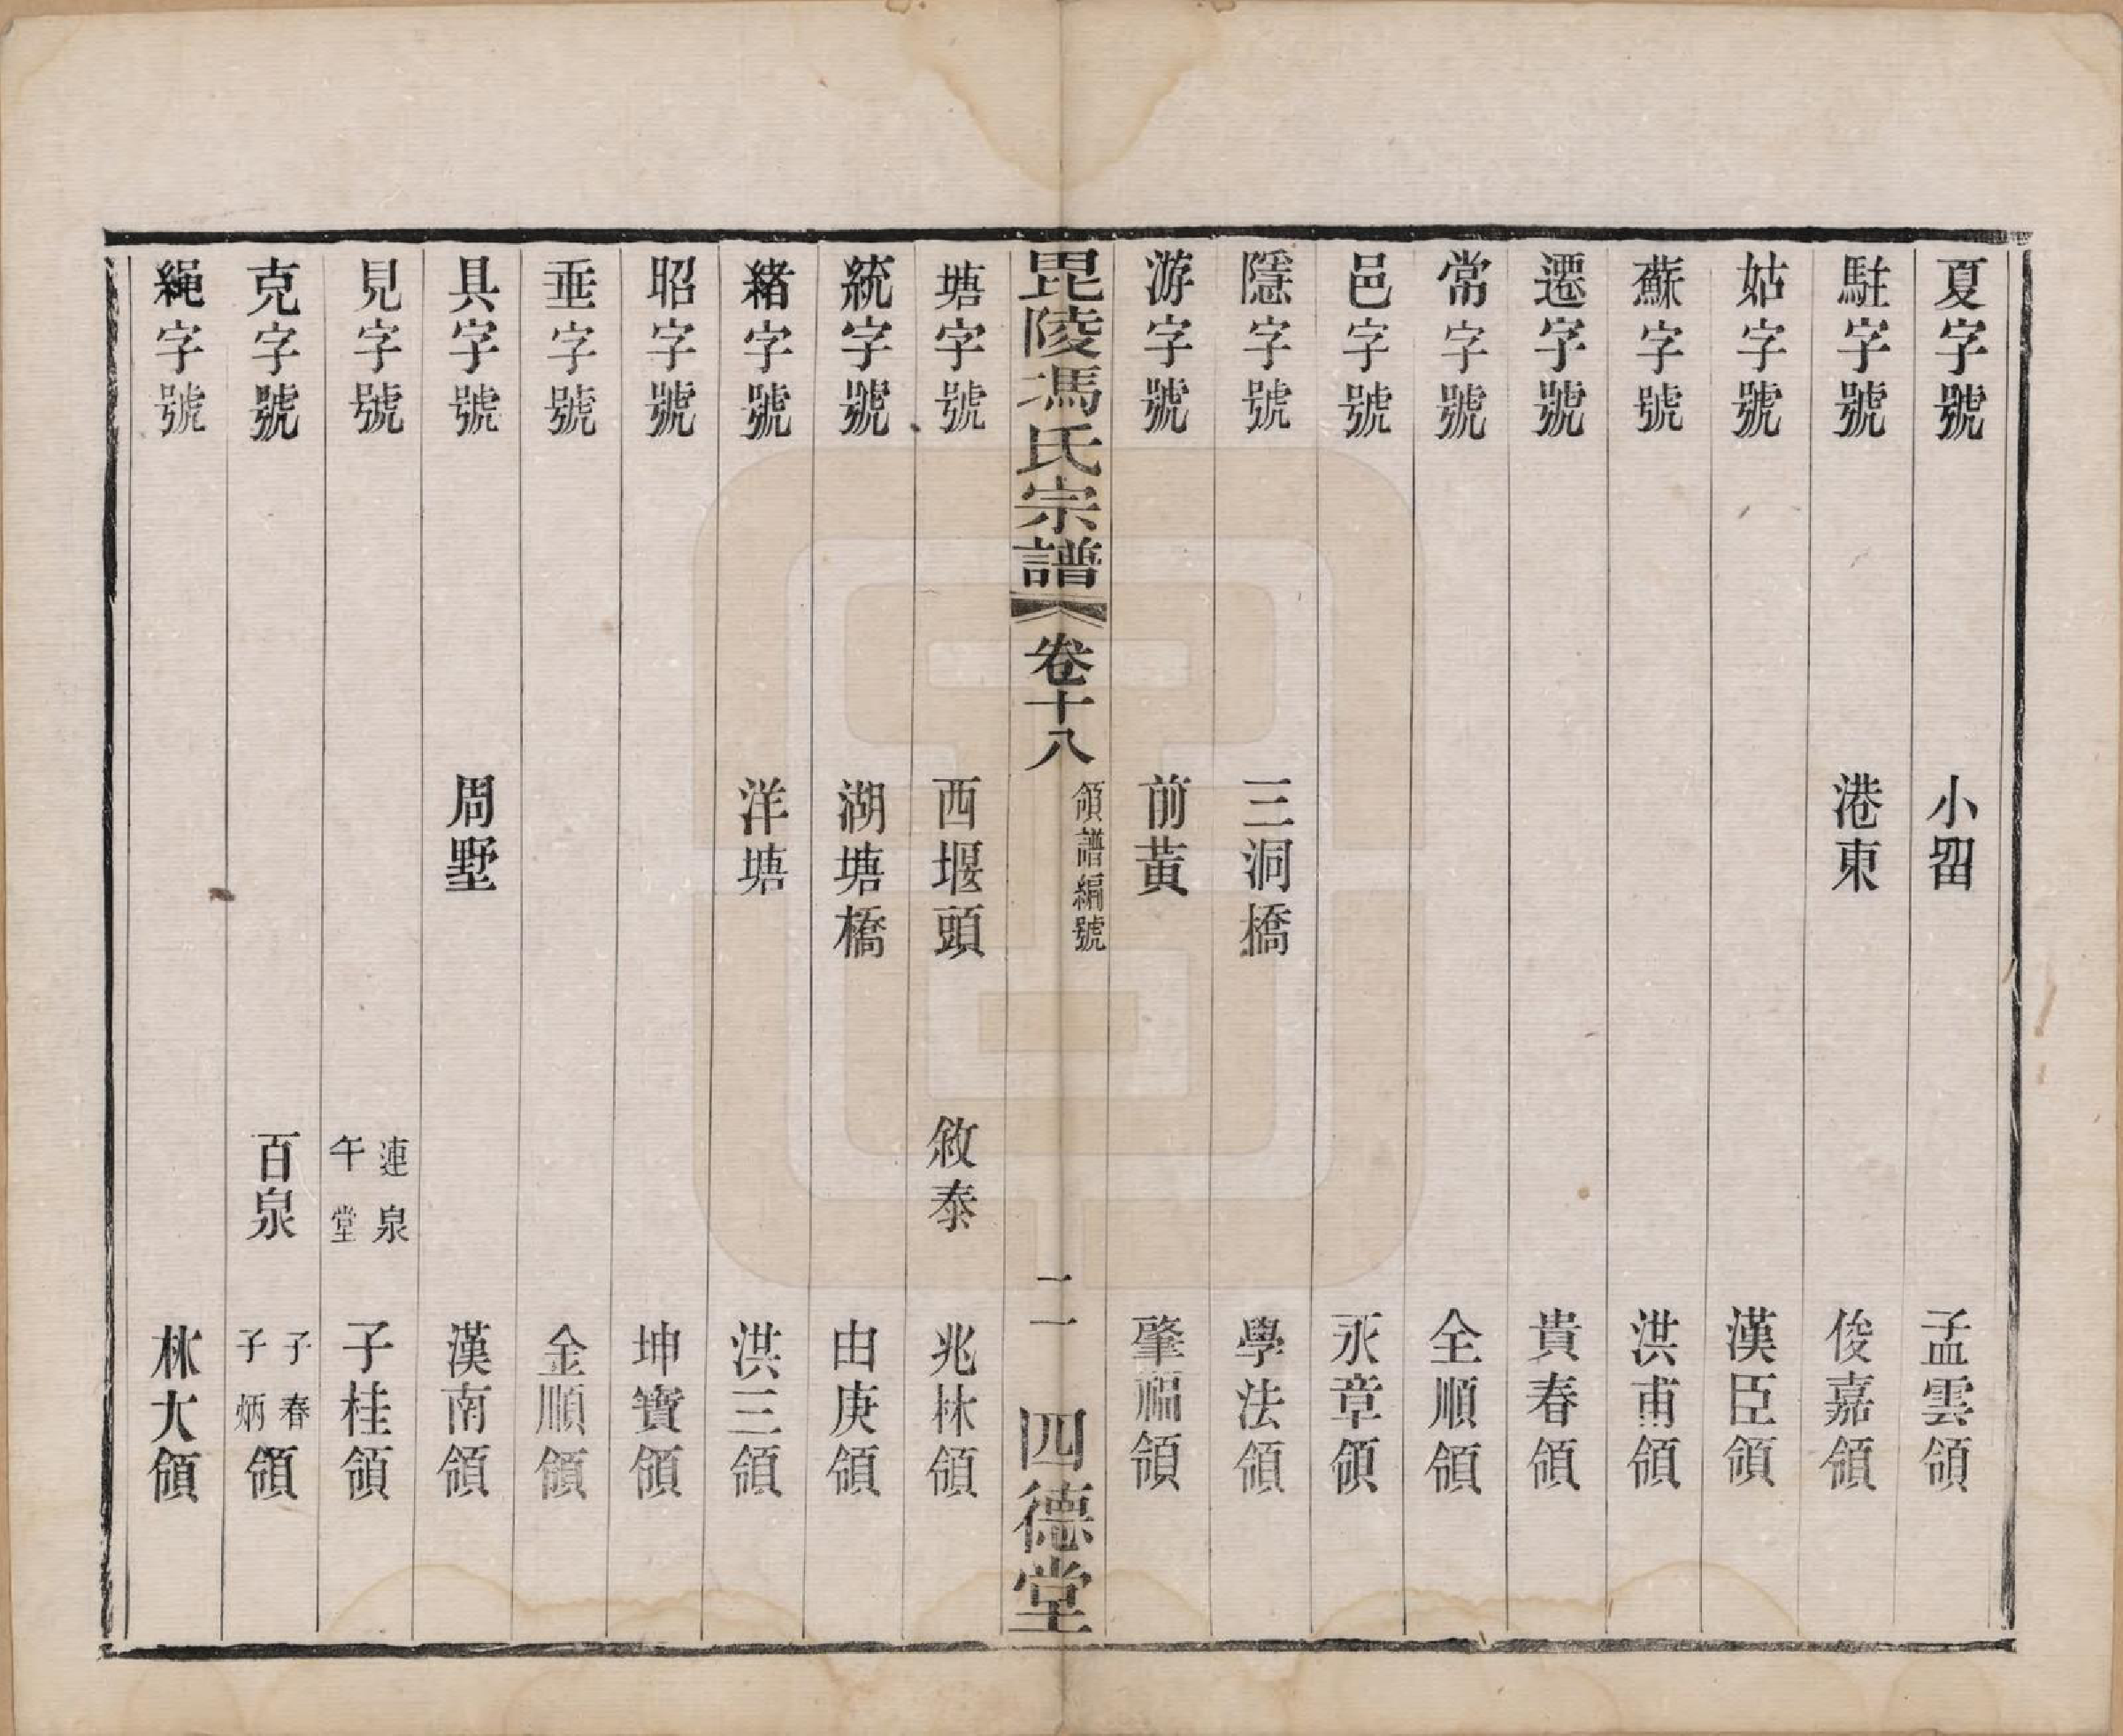 夏字號　小留　孟雲領
駐字號　港東　俊嘉領
姑字號　漢臣領
蘇字號　洪甫領
遷字號　貴春領
常字號　全順領
邑字號　永章領
隱字號　三洞橋　學法領
游字號　前黃　肇福領
毘陵馮氏宗譜　卷十八　領譜編號　二　四德堂
塘字號　西堰頭　敘泰　兆林領
統字號　湖塘橋　由庚領
緒字號　洋塘　洪三領
昭字號　坤寶領
垂字號　金順領
具字號　周墅　漢南領
見字號　連泉　午堂　子桂領
克字號　百泉　子春　子炳　領
繩字號　林大領